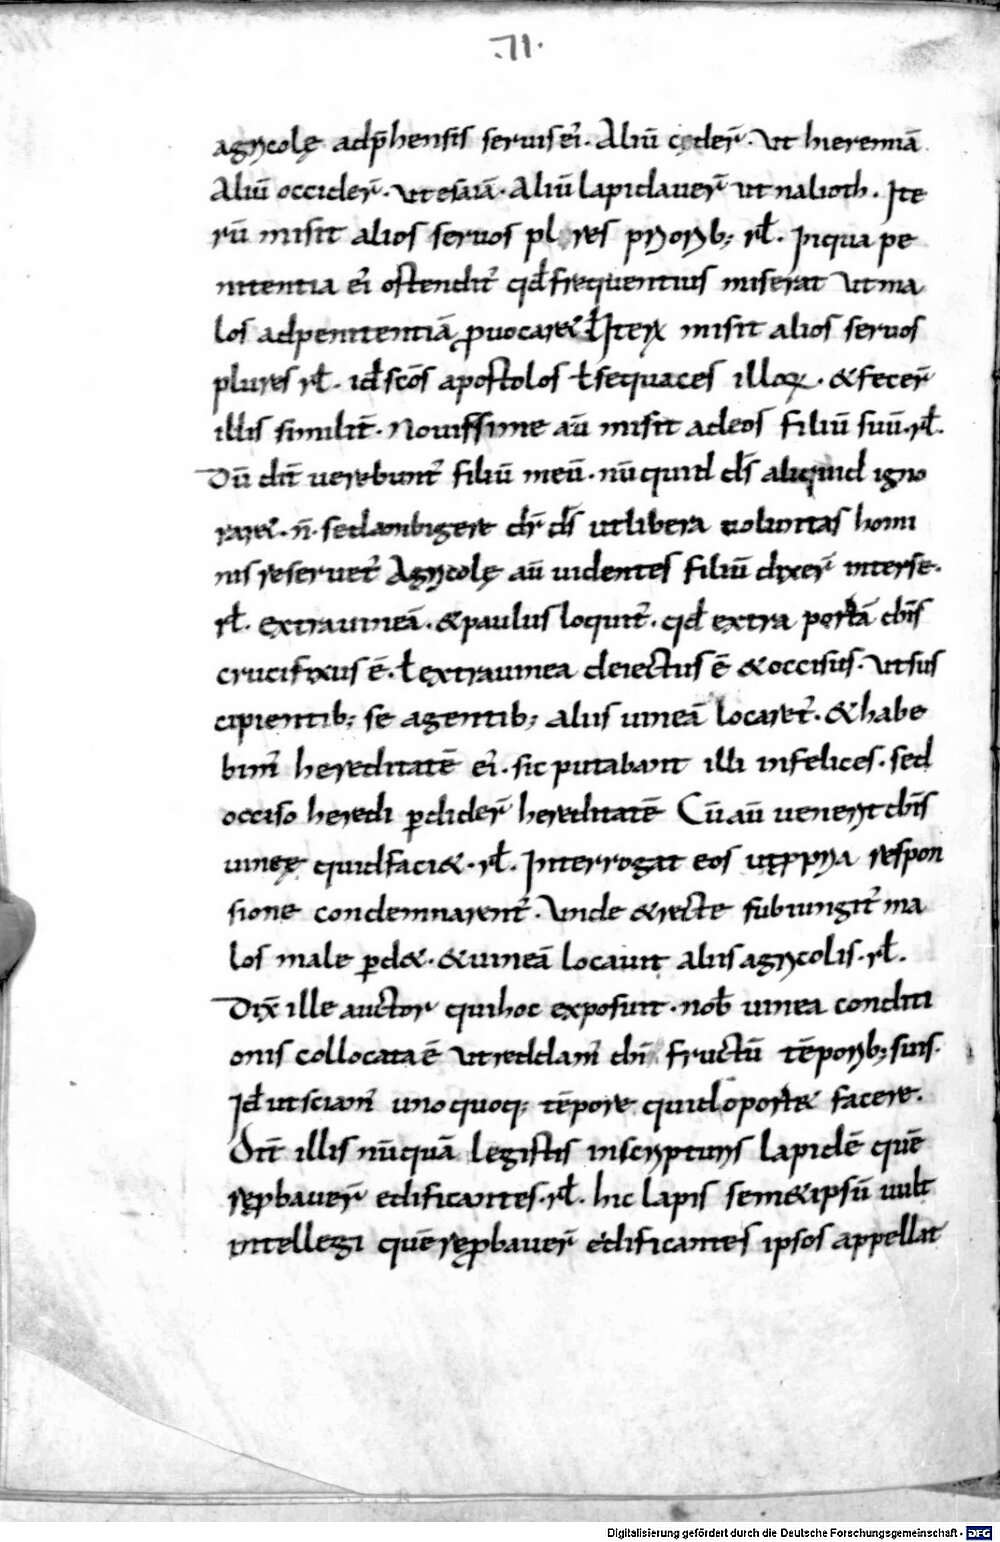 .71.
agricolę adp̄hensis seruis ei᾿. Aliū cęder̄. Vt hieremiā.
Aliū occider̄. ut esaiā. Aliū lapidauer̄ ut naboth. Ite
rū misit alios seruos plures priorib; rł. Inqua pe
nitentia ei᾿ ostendit᾿ qđ frequentius miserat Vt ma
los adpenitentiā ꝓuocar& ł Iterū misit alios seruos
plures rł. id scōs apostolos ł sequaces illoꝝ. & fecer̄
illis similit̄. Nouissime aū misit adeos filiū suū. rł.
Dū dic̄ uerebunt᾿ filiū meū. nūquid dr̄ aliquid igno
rar&. n̄. sed ambigere dr̄ ds̄ ut libera uoluntas homi
nis reseruet᾿ Agricolę aū uidentes filiū dixer̄ interse.
rł. extrauineā. & paulus loquit᾿. qđ extra portā dn̄s
crucifixus ē. ł extrauinea deiectus ē & occisus. Vt sus
cipientib; se agentib; aliis uineā locaret᾿. & habe
bim᾿ hereditatē ei᾿. sic putabant illi infelices. sed
occiso heredi ꝑdider̄ hereditatē Cū aū uenerit dn̄s
uineę quid faci&. rł. Interrogat eos utꝓpria respon
sione condemnarent᾿. Vnde & recte subiungit᾿ ma
los male ꝑd&. & uineā locauit aliis agricolis. rł.
Dix̄ ille auctor quihoc exposuit. nob̄ uinea conditi
onis collocata ē Vt reddam᾿ dn̄i fructū tēporib; suis.
Id ut sciam᾿ uno quoq; tēpore quid oport& facere.
Dic̄ illis nūquā legistis inscripturis lapidē quē
reꝓbauer̄ edificantes. rł. hic lapis sem&ipsū uult
intellegi quē reꝓbauer̄ edificantes ipsos appellat
Digitalisierung gefördert durch die Deutsche Forschungsgemeinschaft - DFG